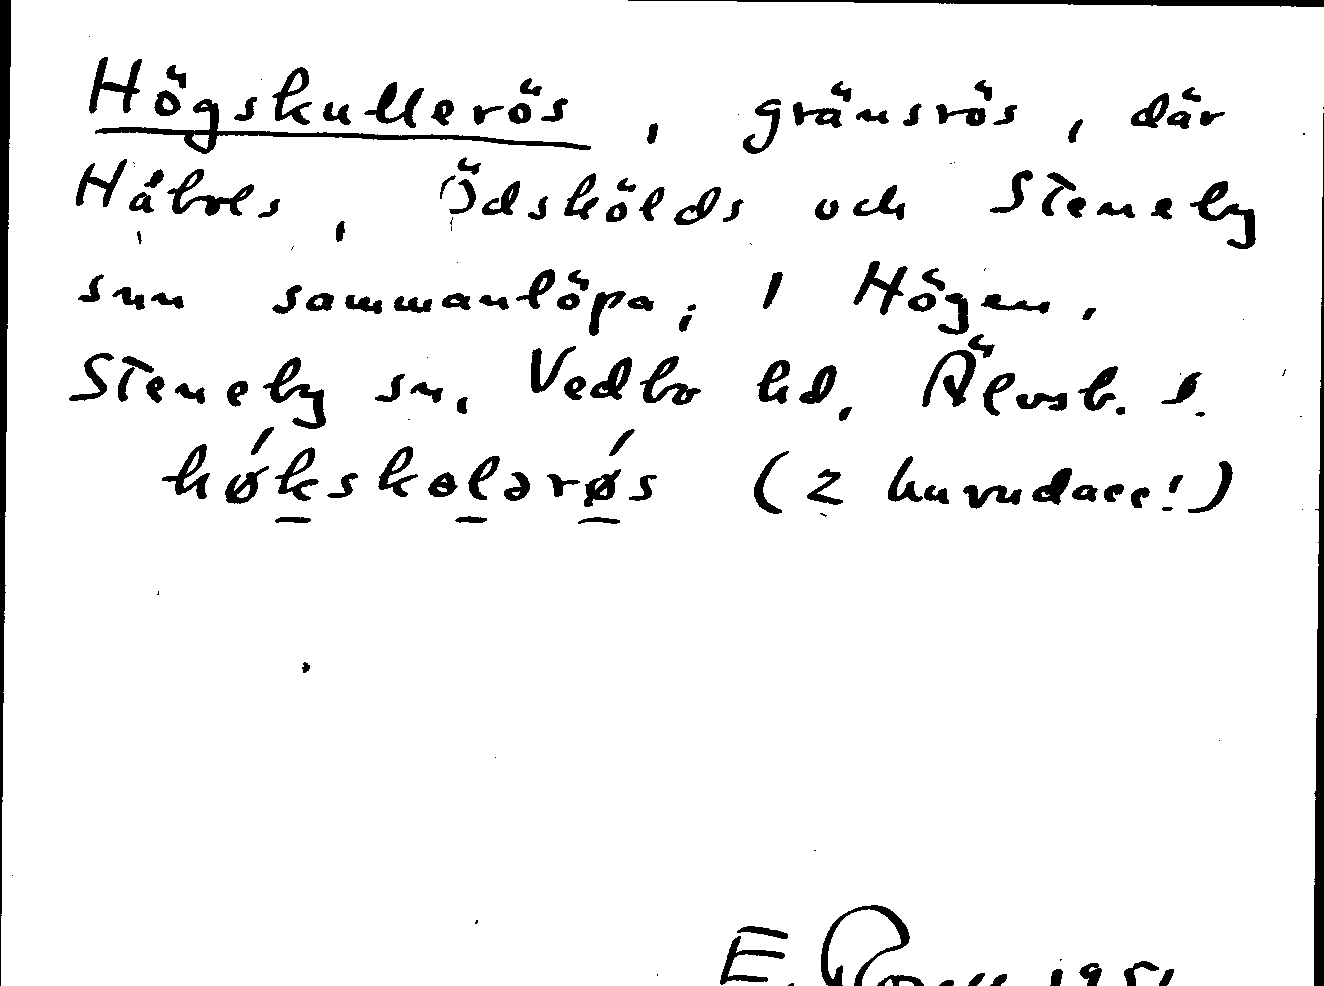 Högskullerös, gränsrös, där
Håbols, Ödskölds och Steneby
snn sammanlöpa; 1 Högen,
Steneby sn, Vedbo hd, Älvsb. l.
hǿkskɵlərǿs (2 huvudacc!)
E.